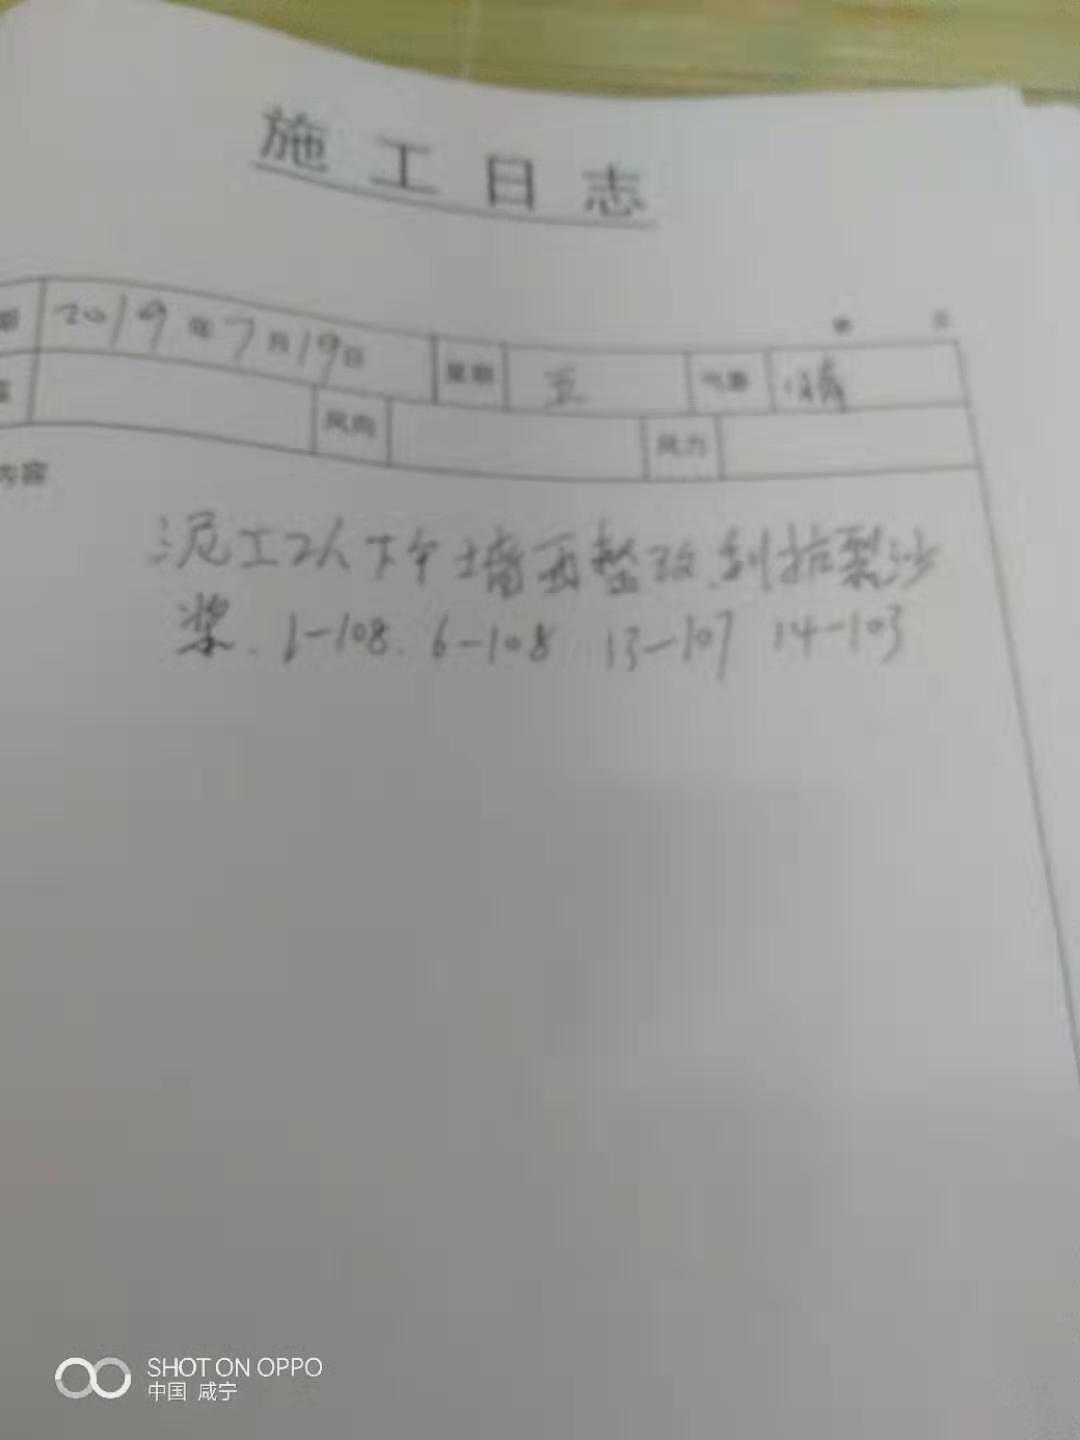 施工日志
第 页
期 2019年7月19日 星期 五 气象 晴
风向 风力
内容
泥工2人下午墙面整改.刮抗裂沙
浆.1-108.6-108 13-107 14-103
SHOT ON OPPO
中国 咸宁